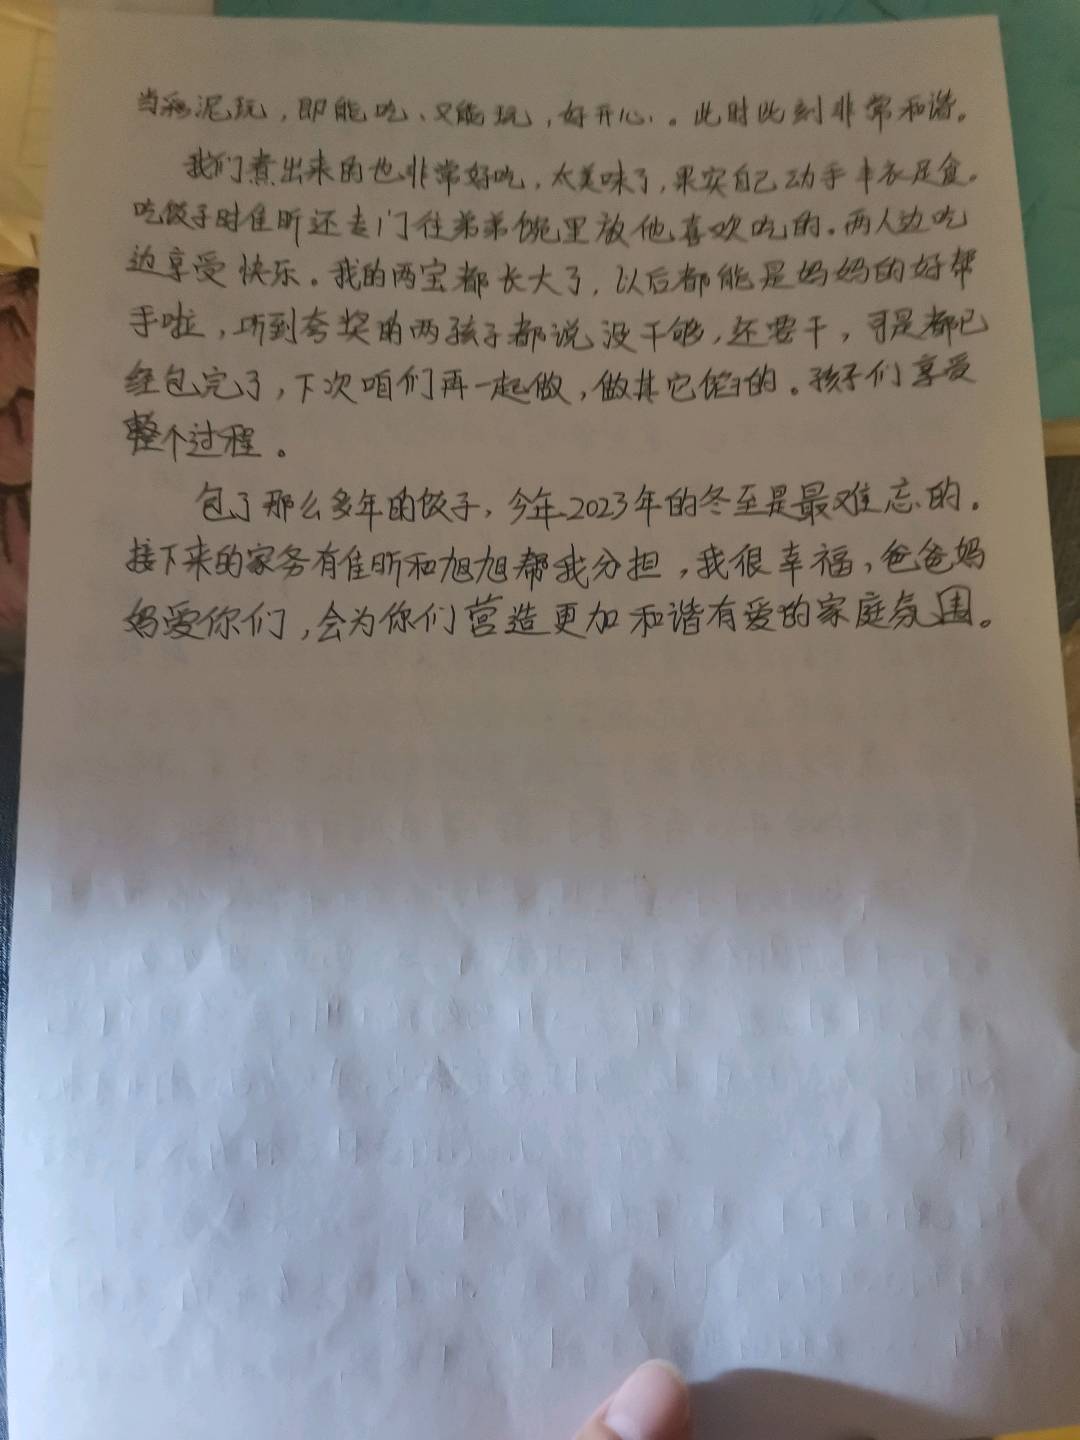 当彩泥玩，即能吃、又能玩，好开心。此时此刻非常和谐。
我们煮出来的也非常好吃，太美味了，果实自己动手丰衣足食。
吃饺子时佳昕还专门往弟弟碗里放他喜欢吃的。两人边吃
边享受快乐。我的两宝都长大了，以后都能是妈妈的好帮
手啦，听到夸奖的两孩子都说没干够，还要干，可是都已
经包完了，下次咱们再一起做，做其它馅的。孩子们享受
整个过程。
包了那么多年的饺子，今年2023年的冬至是最难忘的。
接下来的家务有佳昕和旭旭帮我分担，我很幸福，爸爸妈
妈爱你们，会为你们营造更加和谐有爱的家庭氛围。